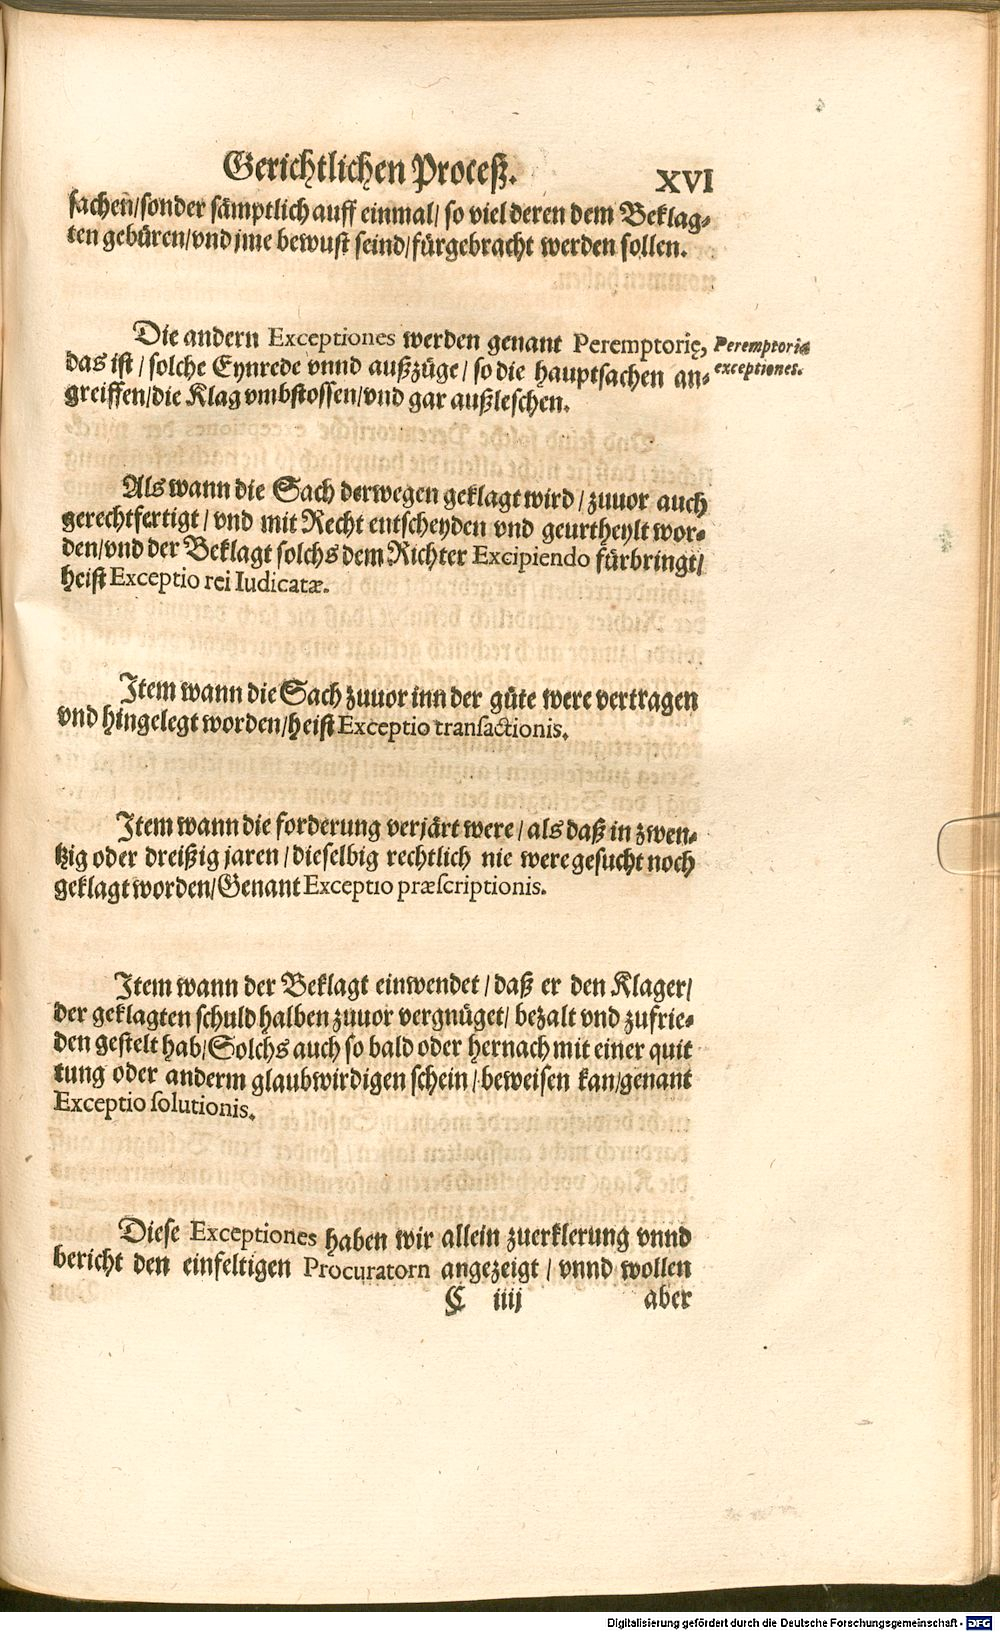 Gerichtlichen Proceß. XVI
sachen/sonder sämptlich auff einmal/ so viel deren dem Beklag-
ten gebüren/vnd jme bewust seind/fürgebracht werden sollen.
Die andern Exceptiones werden genant Peremptorię,
das ist / solche Eynrede vnnd außzüge / so die hauptsachen an-
greiffen/die Klag vmbstossen/vnd gar außleschen.
Peremptoriæ
exceptiones.
Als wann die Sach derwegen geklagt wird / zuuor auch
gerechtfertigt / vnd mit Recht entscheyden vnd geurtheylt wor-
den/vnd der Beklagt solchs dem Richter Excipiendo fürbringt/
heist Exceptio rei Iudicatæ.
Item wann die Sach zuuor inn der güte were vertragen
vnd hingelegt worden/heist Exceptio transactionis.
Item wann die forderung verjärt were / als daß in zwen-
tzig oder dreißig jaren / dieselbig rechtlich nie were gesucht noch
geklagt worden/Genant Exceptio præscriptionis.
Item wann der Beklagt einwendet / daß er den Klager/
der geklagten schuld halben zuuor vergnüget/ bezalt vnd zufrie-
den gestelt hab/Solchs auch so bald oder hernach mit einer quit
tung oder anderm glaubwirdigen schein / beweisen kan/genant
Exceptio solutionis.
Diese Exceptiones haben wir allein zuerklerung vnnd
bericht den einfeltigen Procuratorn angezeigt / vnnd wollen
C iiij aber
Digitalisierung gefördert durch die Deutsche Forschungsgemeinschaft - DFG